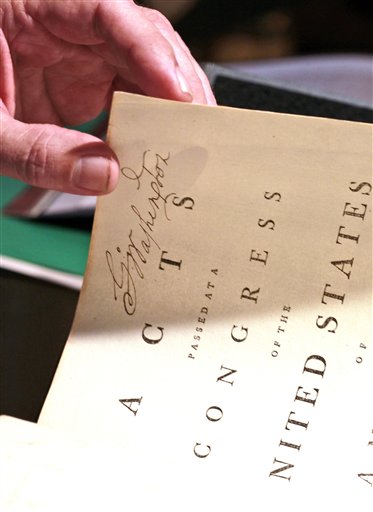 G:Washington
ACTS
PASSED AT A
CONGRESS
OF THE
NITED STATES
OF
AM